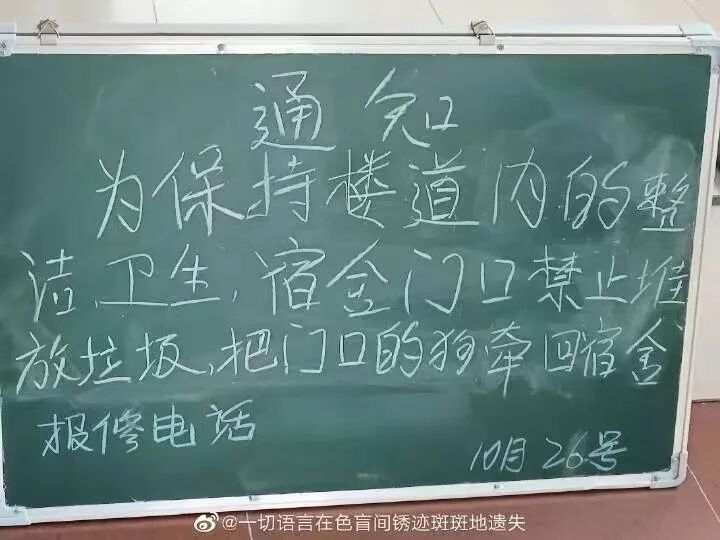 通知
为保持楼道内的整
洁、卫生,宿舍门口禁止堆
放垃圾,把门口的狗牵回宿舍
报修电话
10月26号
@一切语言在色盲间锈迹斑斑地遗失